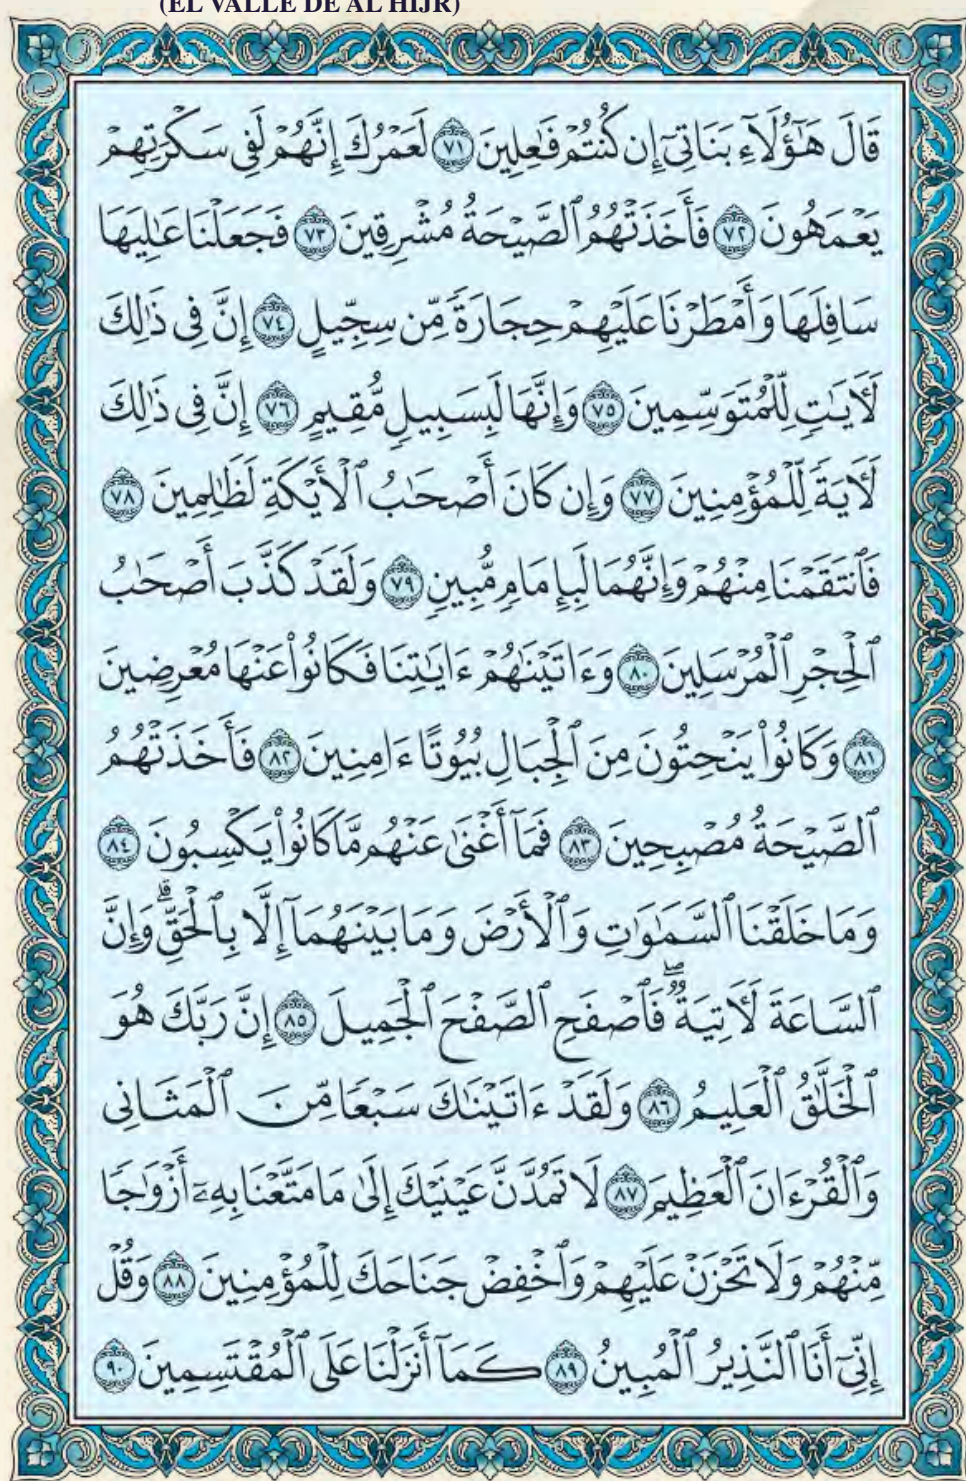 (EL VALLE DE AL HIJR)
قَالَ هَٰٓؤُلَآءِ بَنَاتِىٓ إِن كُنتُمْ فَٰعِلِينَ ٧١ لَعَمْرُكَ إِنَّهُمْ لَفِى سَكْرَتِهِمْ
يَعْمَهُونَ ٧٢ فَأَخَذَتْهُمُ ٱلصَّيْحَةُ مُشْرِقِينَ ٧٣ فَجَعَلْنَا عَٰلِيَهَا
سَافِلَهَا وَأَمْطَرْنَا عَلَيْهِمْ حِجَارَةً مِّن سِجِّيلٍ ٧٤ إِنَّ فِى ذَٰلِكَ
لَءَايَٰتٍ لِّلْمُتَوَسِّمِينَ ٧٥ وَإِنَّهَا لَبِسَبِيلٍ مُّقِيمٍ ٧٦ إِنَّ فِى ذَٰلِكَ
لَءَايَةً لِّلْمُؤْمِنِينَ ٧٧ وَإِن كَانَ أَصْحَٰبُ ٱلْأَيْكَةِ لَظَٰلِمِينَ ٧٨
فَٱنتَقَمْنَا مِنْهُمْ وَإِنَّهُمَا لَبِإِمَامٍ مُّبِينٍ ٧٩ وَلَقَدْ كَذَّبَ أَصْحَٰبُ
ٱلْحِجْرِ ٱلْمُرْسَلِينَ ٨٠ وَءَاتَيْنَٰهُمْ ءَايَٰتِنَا فَكَانُوا۟ عَنْهَا مُعْرِضِينَ
٨١ وَكَانُوا۟ يَنْحِتُونَ مِنَ ٱلْجِبَالِ بُيُوتًا ءَامِنِينَ ٨٢ فَأَخَذَتْهُمُ
ٱلصَّيْحَةُ مُصْبِحِينَ ٨٣ فَمَآ أَغْنَىٰ عَنْهُم مَّا كَانُوا۟ يَكْسِبُونَ ٨٤
وَمَا خَلَقْنَا ٱلسَّمَٰوَٰتِ وَٱلْأَرْضَ وَمَا بَيْنَهُمَآ إِلَّا بِٱلْحَقِّ ۗ وَإِنَّ
ٱلسَّاعَةَ لَءَاتِيَةٌ ۖ فَٱصْفَحِ ٱلصَّفْحَ ٱلْجَمِيلَ ٨٥ إِنَّ رَبَّكَ هُوَ
ٱلْخَلَّٰقُ ٱلْعَلِيمُ ٨٦ وَلَقَدْ ءَاتَيْنَٰكَ سَبْعًا مِّنَ ٱلْمَثَانِى
وَٱلْقُرْءَانَ ٱلْعَظِيمَ ٨٧ لَا تَمُدَّنَّ عَيْنَيْكَ إِلَىٰ مَا مَتَّعْنَا بِهِۦٓ أَزْوَٰجًا
مِّنْهُمْ وَلَا تَحْزَنْ عَلَيْهِمْ وَٱخْفِضْ جَنَاحَكَ لِلْمُؤْمِنِينَ ٨٨ وَقُلْ
إِنِّىٓ أَنَا ٱلنَّذِيرُ ٱلْمُبِينُ ٨٩ كَمَآ أَنزَلْنَا عَلَى ٱلْمُقْتَسِمِينَ ٩٠